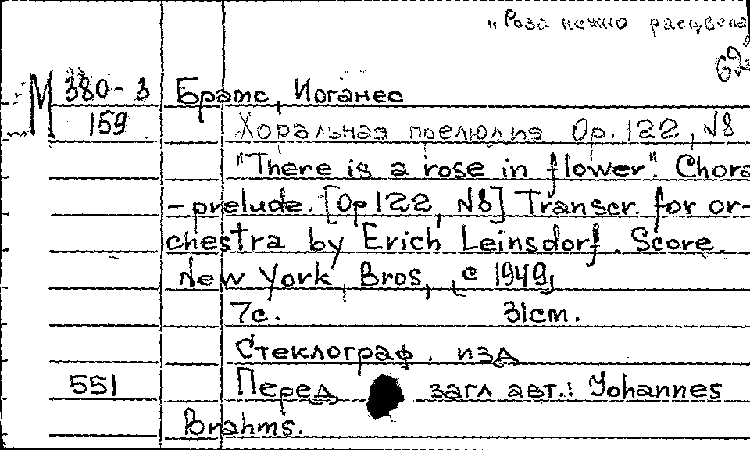 "Роза нежно расцвела
М 380-3 Брамс, Иоганес
159 Хоральная прелюдия Op. 122, №8
"There is a rose in flower". Chora
-prelude. [Op 122, №8] Transcr. for or-
chestra by Erich Leinsdorf. Score.
New York, Bros, [c 1949]
7с. 31cm.
Стеклограф. изд
551 Перед загл авт.: Yohannes
Brahms.